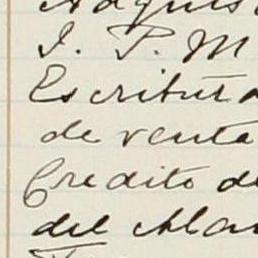 J. P. M
Escritura
de venta
Credito de
del Man